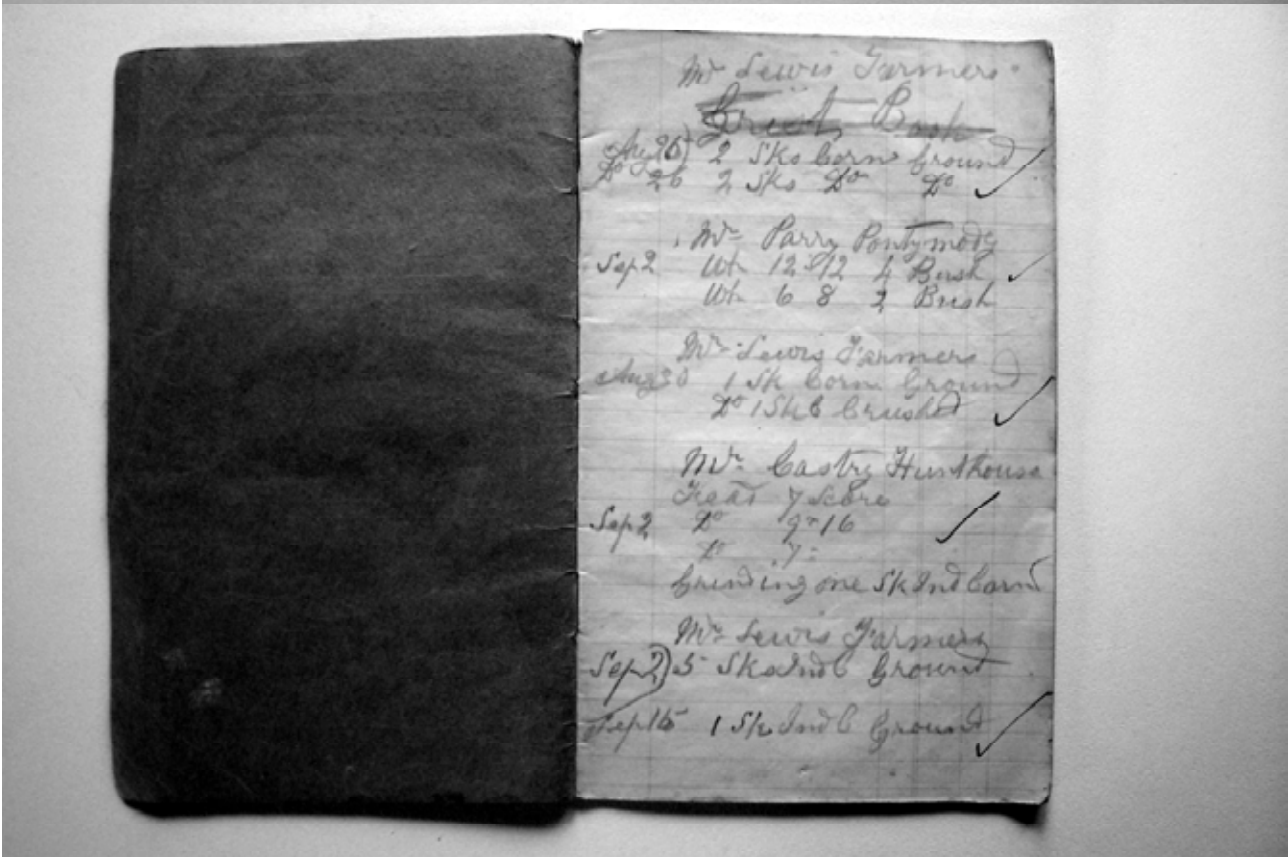 Mr Lewis Farmers
Grist Book
Aug 26) 2 Sks Corn Ground
Do 26 2 Sks Do Do
Mr Parry Pontymody
Sep 2 Wt 12 s 12 4 Bush
Wt 6 8 2 Bush
Mr Lewis Farmers
Aug 30 1 Sk Corn Ground
Do 1 Sk C Crushed
Mr Castry Hunthouse
7 Score
Sep 2 Do 9 = 16
Do 7 =
Grinding one Sk Ind Corn
Mr Lewis Farmers
Sep 7) 5 Sks Ind C Ground
Sep 15 1 Sk Ind C Ground